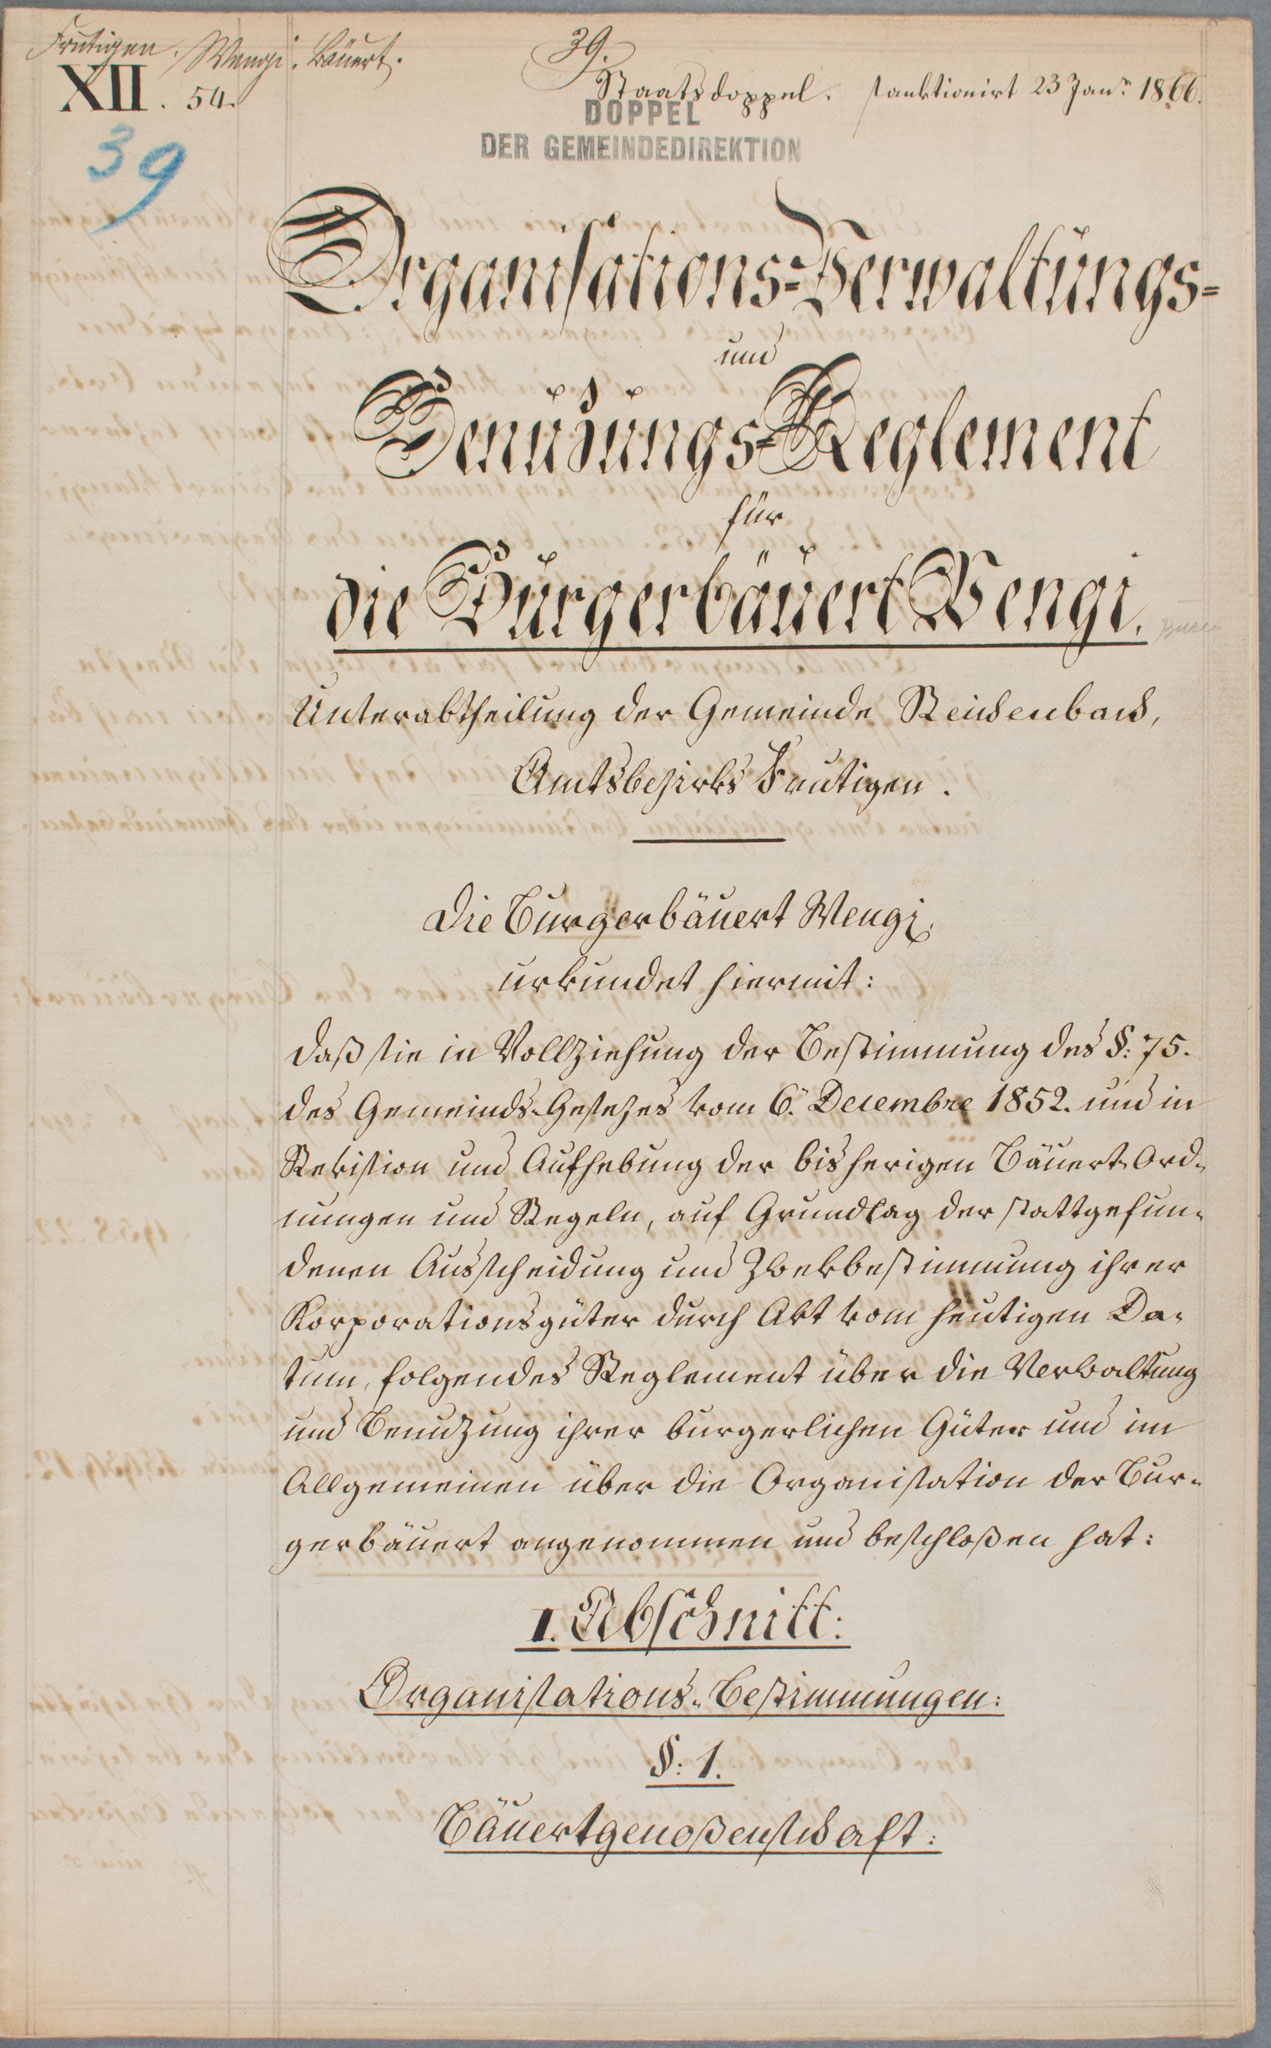 Frutigen. Wengi. Bäuert.
39.
XII. 54.
Staatsdoppel. sanktionirt 23 Janr 1866.
DOPPEL
DER GEMEINDEDIREKTION
39
Organisations-Verwaltungs-
und
Benutzungs-Reglement
für
die Burgerbäuert Wengi.
Unterabtheilung der Gemeinde Reichenbach,
Amtsbezirks Frutigen.
Die Burgerbäuert Wengi,
urkundet hiermit:
daß sie in Vollziehung der Bestimmung des §: 75.
des Gemeinds-Gesetzes vom 6. Decembre 1852. und in
Revision und Aufhebung der bisherigen Bäuert-Ord-
nungen und Regeln, auf Grundlag der stattgefun-
denen Ausscheidung und Zwekbestimmung ihrer
Korporationsgüter durch Akt vom heutigen Da-
tum, folgendes Reglement über die Verwaltung
und Benutzung ihrer burgerlichen Güter und im
Allgemeinen über die Organisation der Bur-
gerbäuert angenommen und beschloßen hat:
I. Abschnitt:
Organisations-Bestimmungen:
§: 1.
Bäuertgenoßenschaft: